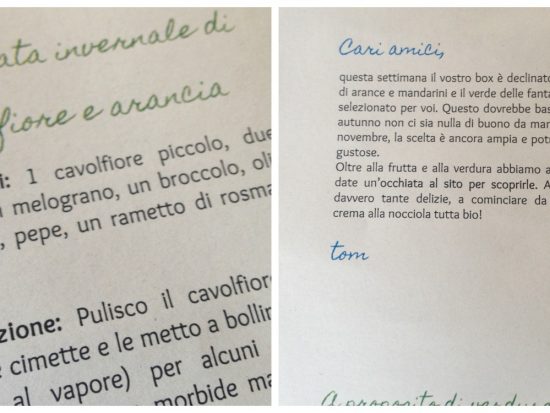 ata invernale di
fiore e arancia
i: 1 cavolfiore piccolo, due
melograno, un broccolo, oli
, pepe, un rametto di rosma
zione: Pulisco il cavolfiore
e cimette e le metto a bollin
al vapore) per alcuni
morbide ma
Cari amici,
questa settimana il vostro box è declinato
di arance e mandarini e il verde delle fanta
selezionato per voi. Questo dovrebbe bas
autunno non ci sia nulla di buono da man
novembre, la scelta è ancora ampia e potr
gustose.
Oltre alla frutta e alla verdura abbiamo a
date un'occhiata al sito per scoprirle. A
davvero tante delizie, a cominciare da
crema alla nocciola tutta bio!
tom
A proposito di